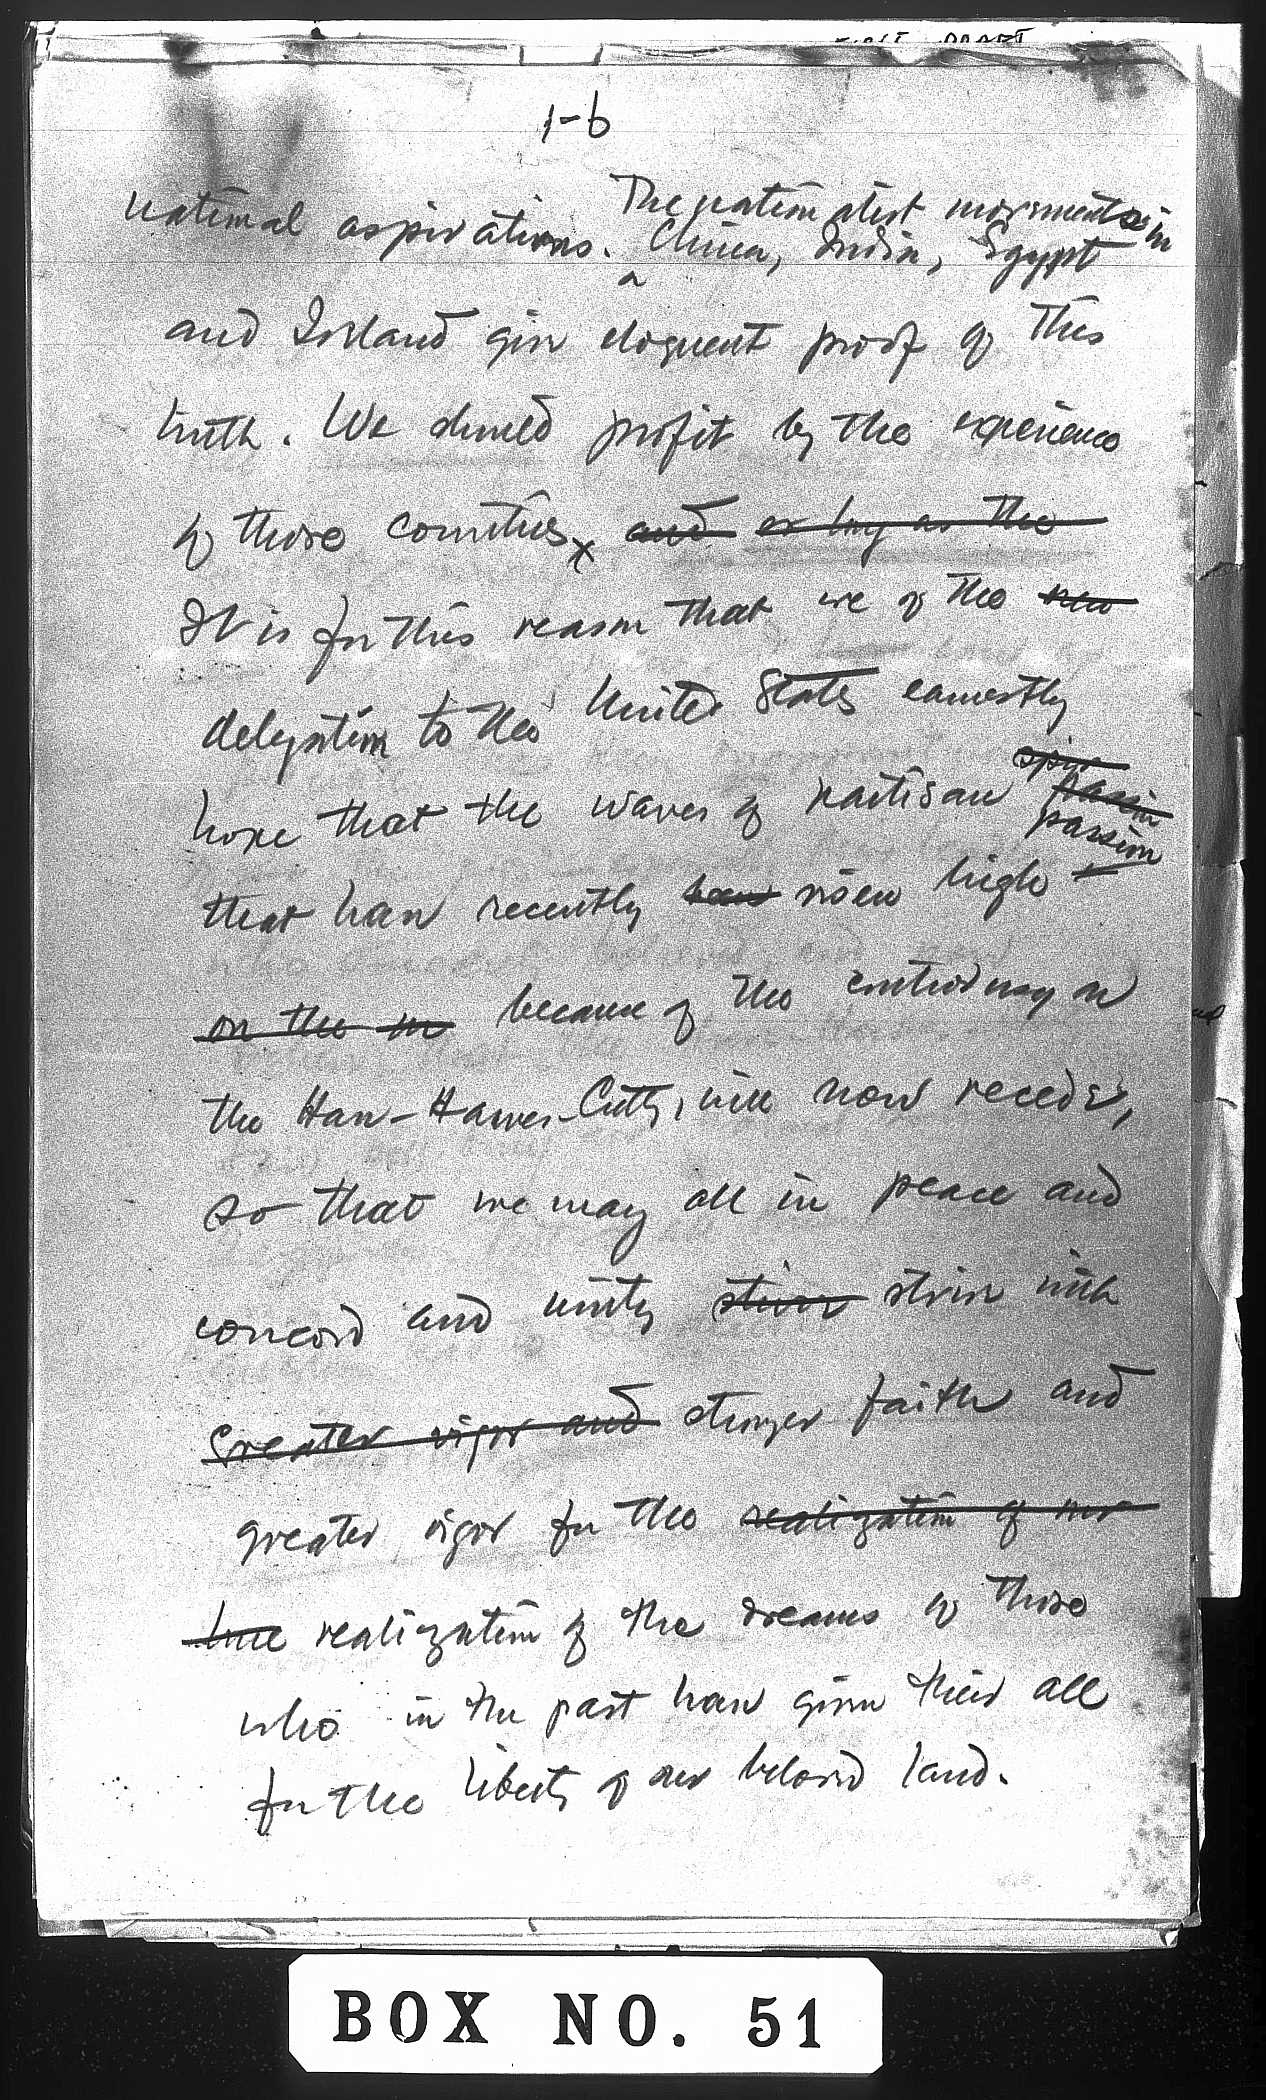 FIRST DRAFT
1-6
The nationalist movements in
national aspirations. China, India, Egypt
and Ireland give eloquent proof of this
truth. We should profit by the experience
of those countries, and as long as the
It is for this reason that we of the new
delegation to the United States earnestly
spir
hope that the waves of partisan passion
passion
that have recently been risen high
on the in because of the controversy on
the Hare-Hawes-Cutting will now recede,
so that we may all in peace and
concord and unity strive strive with
greater vigor and stronger faith and
greater vigor for the realization of our
true realization of the dreams of those
who in the past have given their all
for the liberty of our beloved land.
BOX NO. 51